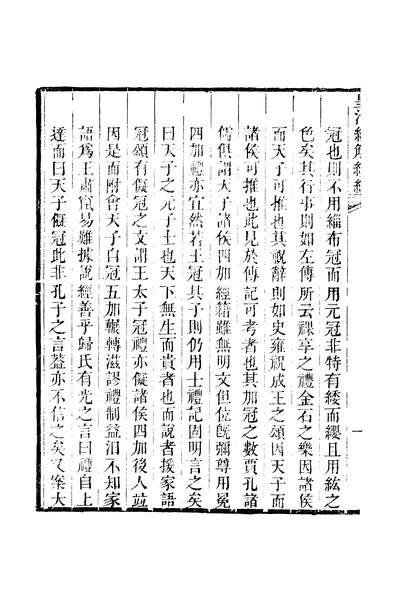 皇清經解續編
冠也則不用緇布冠而用元冠非特有緌而纓且用紘之
色矣其行事則如左傳所云祼享之禮金石之樂因諸侯
而天子可推也其祝辭則如史雍祝成王之頌因天子而
諸侯可推也此見於傳記可考者也其加冠之數賈孔諸
儒俱謂天子諸侯四加經籍雖無明文但位旣彌尊用冕
四加禮亦宜然若王冠其子則仍用士禮記固明言之矣
曰天子之元子士也天下無生而貴者也而說者援家語
冠頌有儗冠之文謂王太子冠禮亦儗諸侯四加後人竝
因是而附會天子白冠五加輾轉滋謬禮制益汨不知家
語爲王肅竄易難據說經善乎歸氏有光之言曰禮自上
達而曰天子儗冠此非孔子之言蓋亦不信之矣又案大